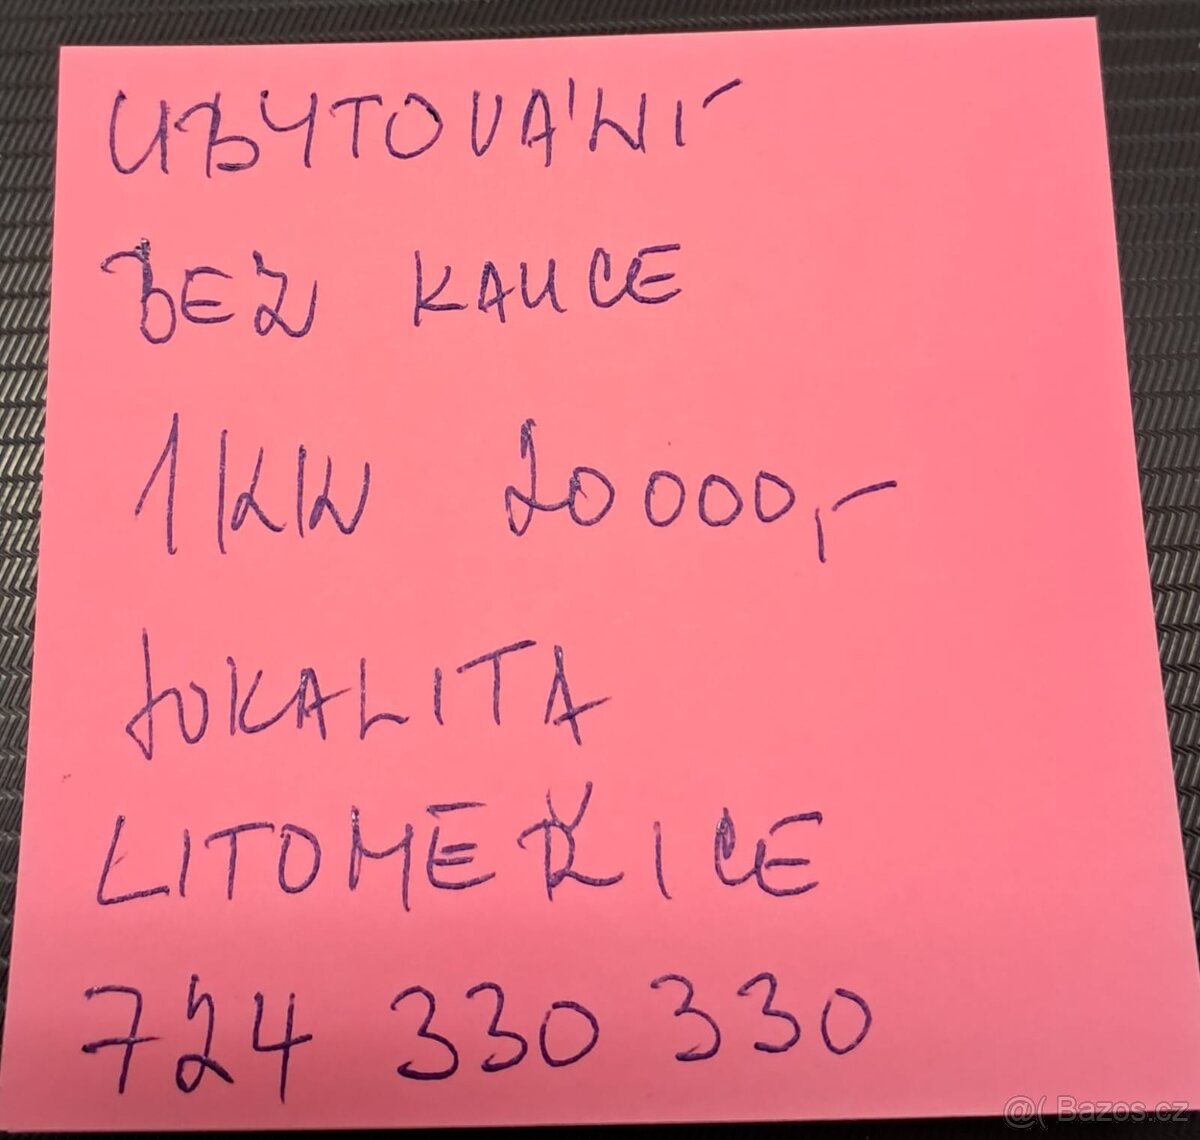 UBYTOVÁNÍ
BEZ KAUCE
1KK 20000,-
LOKALITA
LITOMĚŘICE
724 330 330
@( Bazos.cz